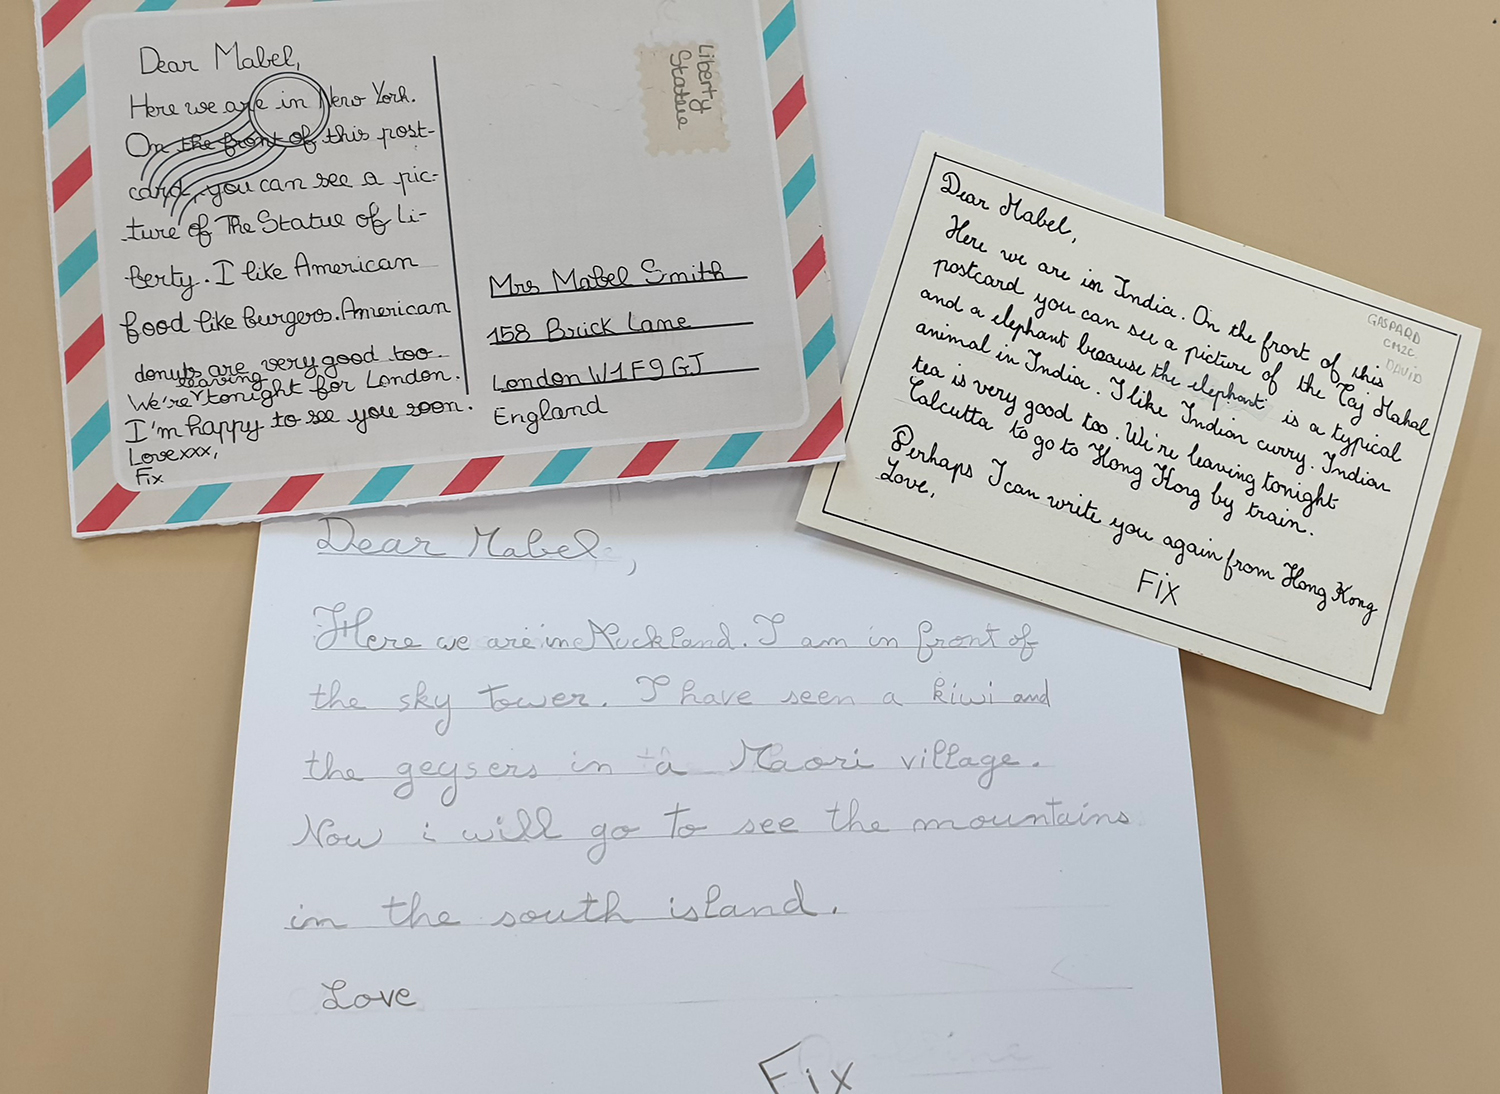 Dear Mabel,
Here we are in New York.
On the front of this post-
card, you can see a pic-
ture of The Statue of Li-
berty. I like American
food like burgers. American
donuts are very good too.
leaving
We're tonight for London.
I'm happy to see you soon.
Love xxx,
Fix
Liberty
Statue
Mrs Mabel Smith
158 Brick Lane
London W1F9GJ
England
Dear Mabel,
Here we are in India. On the front of this
postcard you can see a picture of the Taj Mahal
and a elephant because the elephant is a typical
animal in India. I like Indian curry. Indian
tea is very good too. We're leaving tonight
Calcutta to go to Hong Kong by train.
Perhaps I can write you again from Hong Kong
Love,
Fix
GASPARD
CM2C
DAVID
Dear Mabel,
Here we are in Auckland. I am in front of
the sky tower. I have seen a kiwi and
the geysers in a Maori village.
Now i will go to see the mountains
in the south island.
Love
Fix